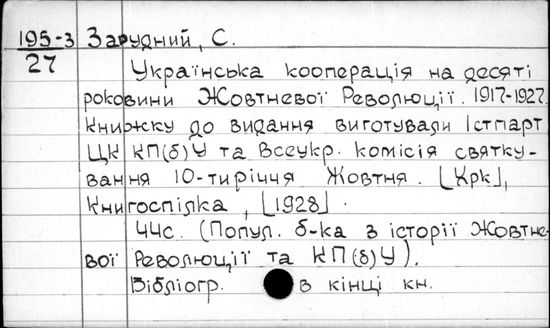 195-3 Зарудний, С.
27
Українська кооперація на десяті
роковини Жовтневої Революції. 1917-1927.
Книжку до видання виготували Істпарт
ЦК КП(б)У та Всеукр. комісія святку-
вання 10-тиріччя Жовтня. [Хрк],
Книгоспілка, [1928].
44с. (Попул. б-ка з історії Жовтне-
вої Революції та КП(б)У).
Бібліогр. в кінці кн.